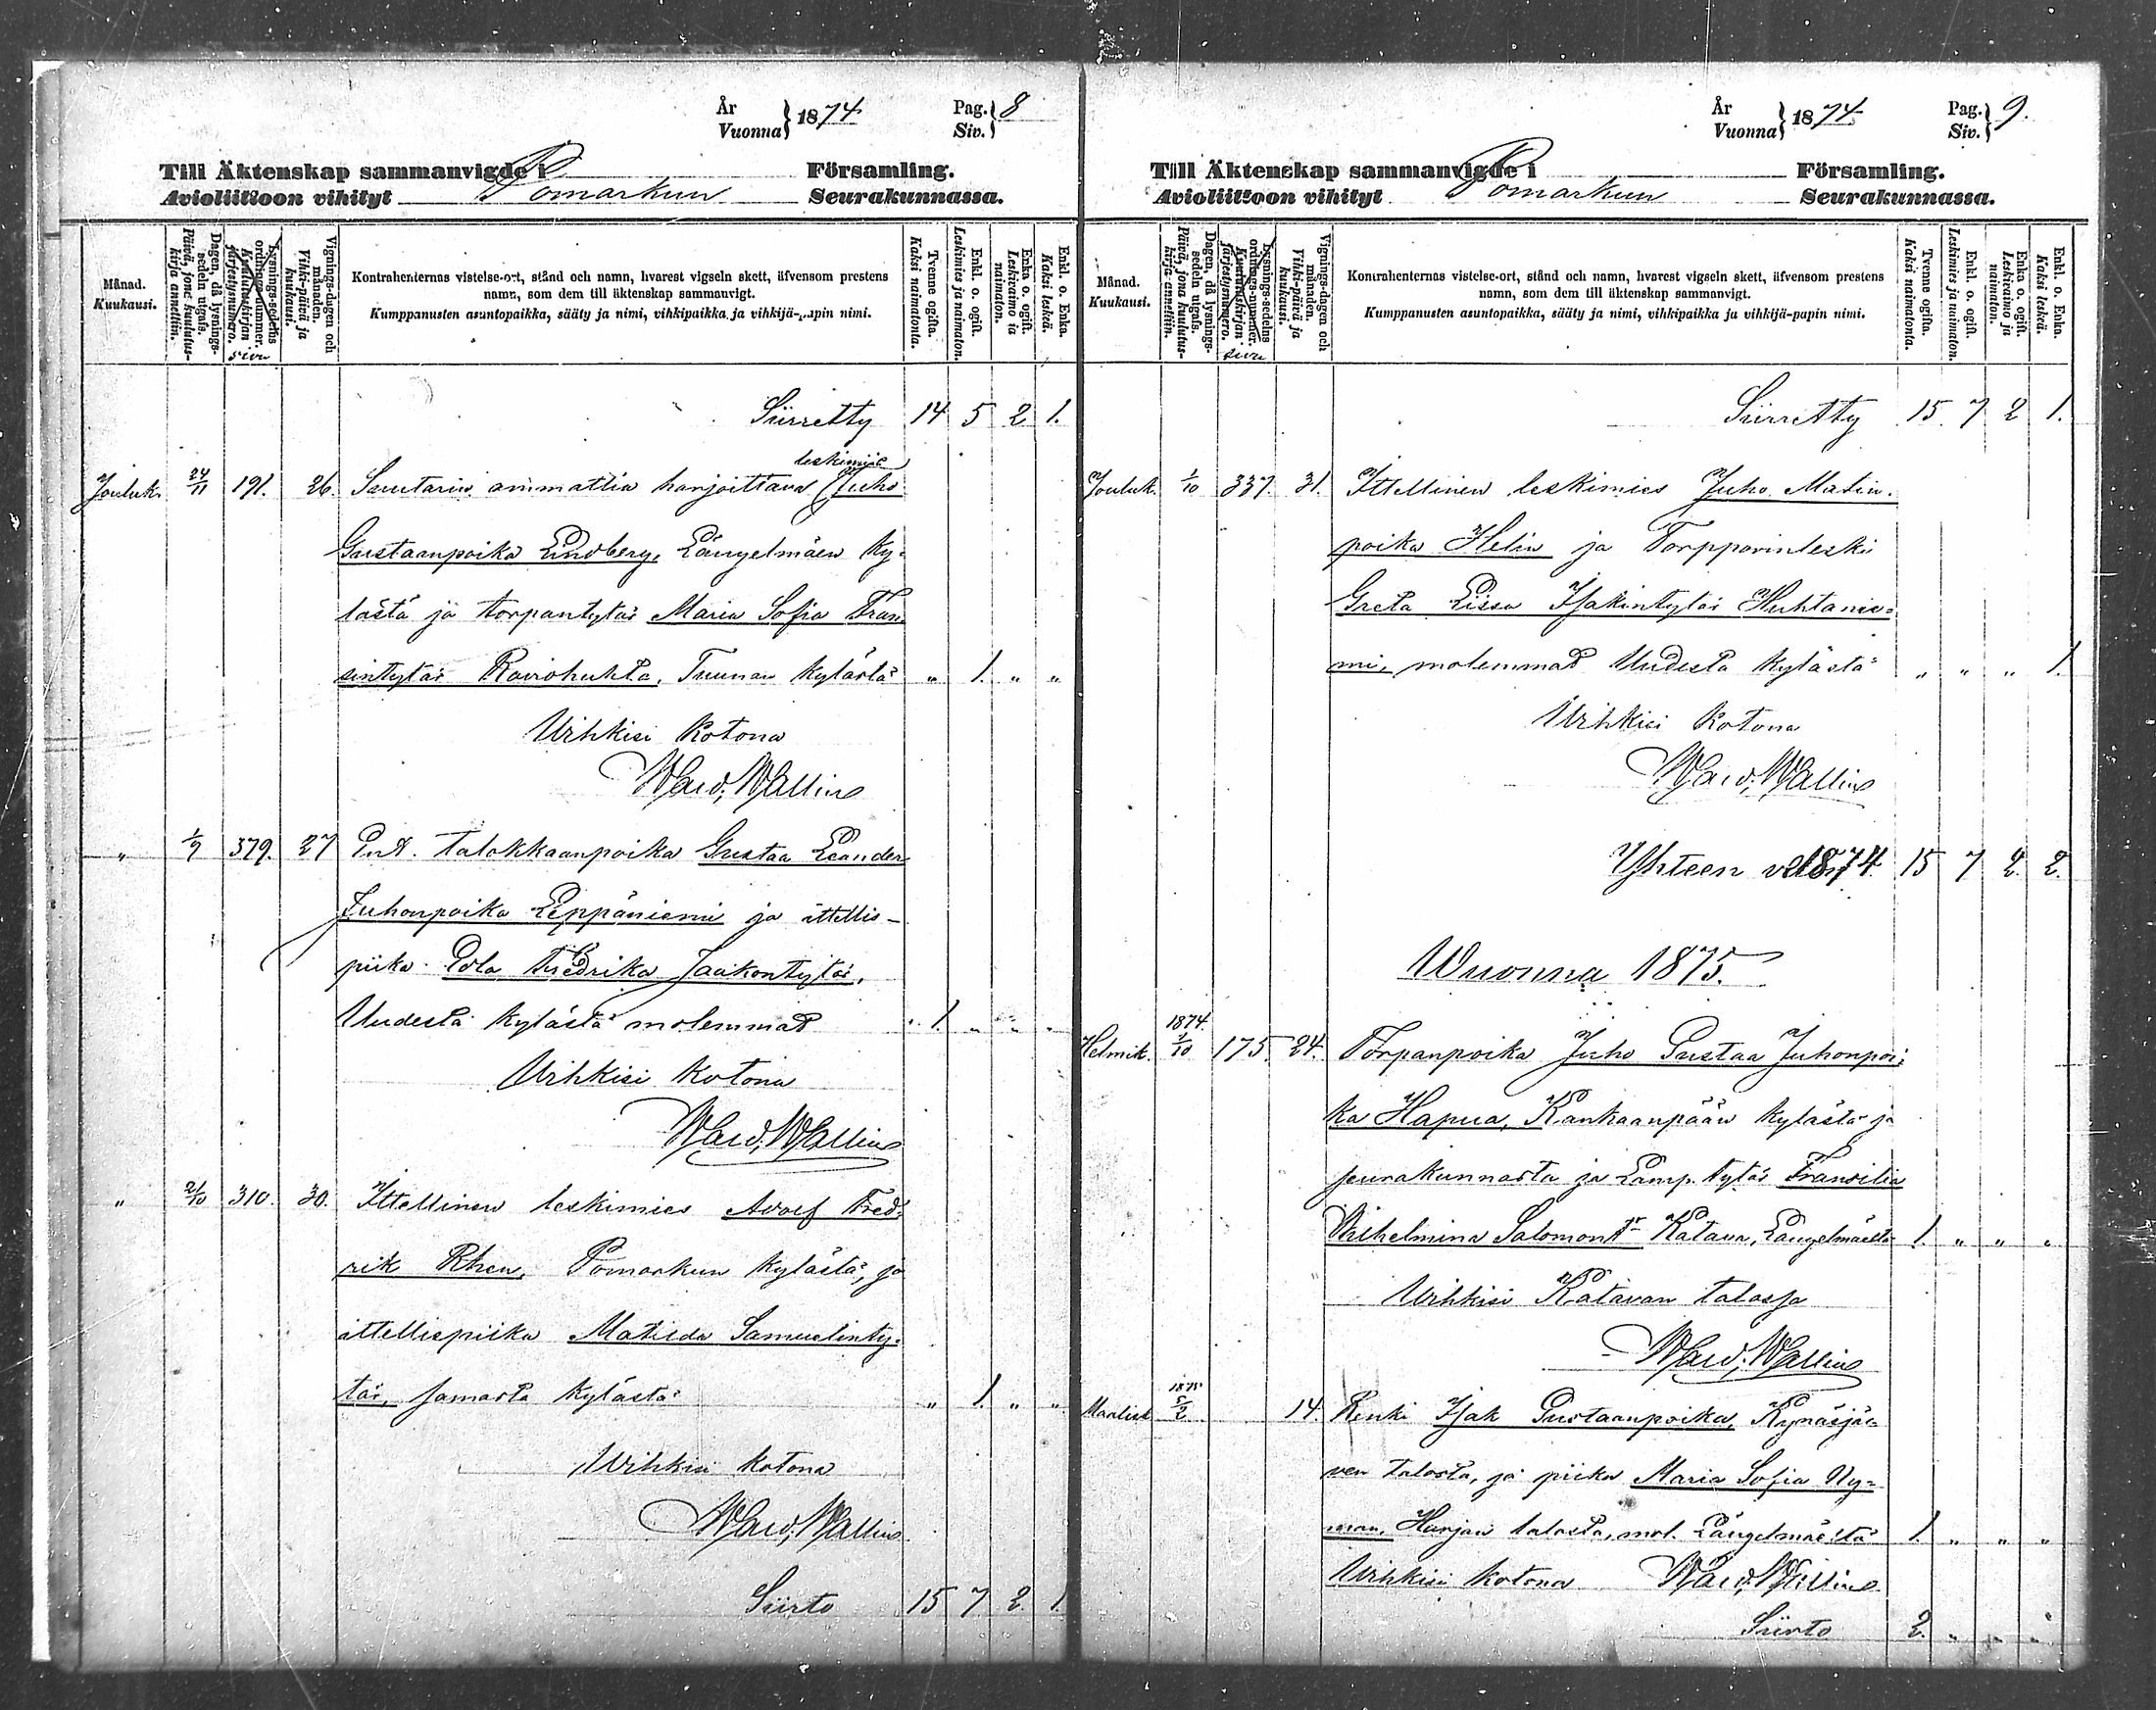 År
Vuonna } 1874 Pag. Siv. } 8
Till Äktenskap sammanvigde i Församling.
Avioliittoon vihityt Pomarkun Seurakunnassa.
Månad. Kuukausi.
Dagen, då lysningssedeln utgafs. Päivä, jona kuulutuskirja annettiin.
Lysnings-sedelns ordnings-nummer. Kuulutuskirjan järjestysnumero. sivu
Vignings-dagen och månaden. Vihki-päivä ja kuukausi.
Kontrahenternas vistelse-ort, stånd och namn, hvarest vigseln skett, äfvensom prestens
namn, som dem till äktenskap sammanvigt.
Kumppanusten asuntopaikka, sääty ja nimi, vihkipaikka ja vihkijä-papin nimi.
Tvenne ogifta. Kaksi naimatonta.
Enkl. o. ogift. Leskimies ja naimaton.
Enka o. ogift. Leskivaimo ja naimaton.
Enkl. o. Enka. Kaksi leskeä.
Siirretty 14 5 2 1.
leskimies
Jouluk. 24/11 191. 26. Suutarin ammattia harjoittava Juho
Gustaanpoika Lindberg, Längelmäen ky-
lästä ja torpantytär Maria Sofia Fran-
sintytär Raivohuhta, Tuunan kylästä „ 1. „ „
Wihkisi kotona
Edw. Wallin
„ 1/7 379. 27 Ent. talokkaanpoika Gustaa Leander
Juhonpoika Leppäniemi ja ittellis-
piika Eva Fredrika Jaakontytär,
Uudesta kylästä molemmat „ 1. „ „
Wihkisi kotona
Edw. Wallin
„ 2/10 310. 30. Ittellinen leskimies Adolf Fred-
rik Rhen, Pomarkun kylästä, ja
ittellispiika Matilda Samuelinty-
tär, samasta kylästä „ 1. „ „
Wihkisi kotona
Edw. Wallin
Siirto 15 7 2 1.
År
Vuonna } 1874 Pag. Siv. } 9.
Till Äktenskap sammanvigde i Församling.
Avioliittoon vihityt Pomarkun Seurakunnassa.
Månad. Kuukausi.
Dagen, då lysningssedeln utgafs. Päivä, jona kuulutuskirja annettiin.
Lysnings-sedelns ordnings-nummer. Kuulutuskirjan järjestysnumero. sivu
Vignings-dagen och månaden. Vihki-päivä ja kuukausi.
Kontrahenternas vistelse-ort, stånd och namn, hvarest vigseln skett, äfvensom prestens
namn, som dem till äktenskap sammanvigt.
Kumppanusten asuntopaikka, sääty ja nimi, vihkipaikka ja vihkijä-papin nimi.
Tvenne ogifta. Kaksi naimatonta.
Enkl. o. ogift. Leskimies ja naimaton.
Enka o. ogift. Leskivaimo ja naimaton.
Enkl. o. Enka. Kaksi leskeä.
Siirretty 15 7 2 1.
Jouluk. 1/10 337. 31. Ittellinen leskimies Juho Matin-
poika Helin ja Torpparinleski
Greta Liisa Isakintytär Huhtanie-
mi, molemmat Uudesta kylästä „ „ „ 1.
Wihkisi kotona
Edw. Wallin
Yhteen v. 1874 15 7 2. 2.
Wuonna 1875.
1874
Helmik. 1/10 175. 24. Torpanpoika Juho Gustaa Juhonpoi-
ka Hapua, Kankaanpään kylästä ja
seurakunnasta ja Lamp. tytär Fransilia
Wilhelmina Salomont:r Katava, Längelmäeltä 1. „ „ „
Wihkisi Katavan talossa
Edw. Wallin
1875
Maalisk. 5/2 14. Renki Isak Gustaanpoika, Kynäsjär-
ven talosta, ja piika Maria Sofia Ny-
man, Harjan talosta, mol. Längelmäeltä 1. „ „ „
Wihkisi kotona Edw. Wallin
Siirto 2. „ „ „